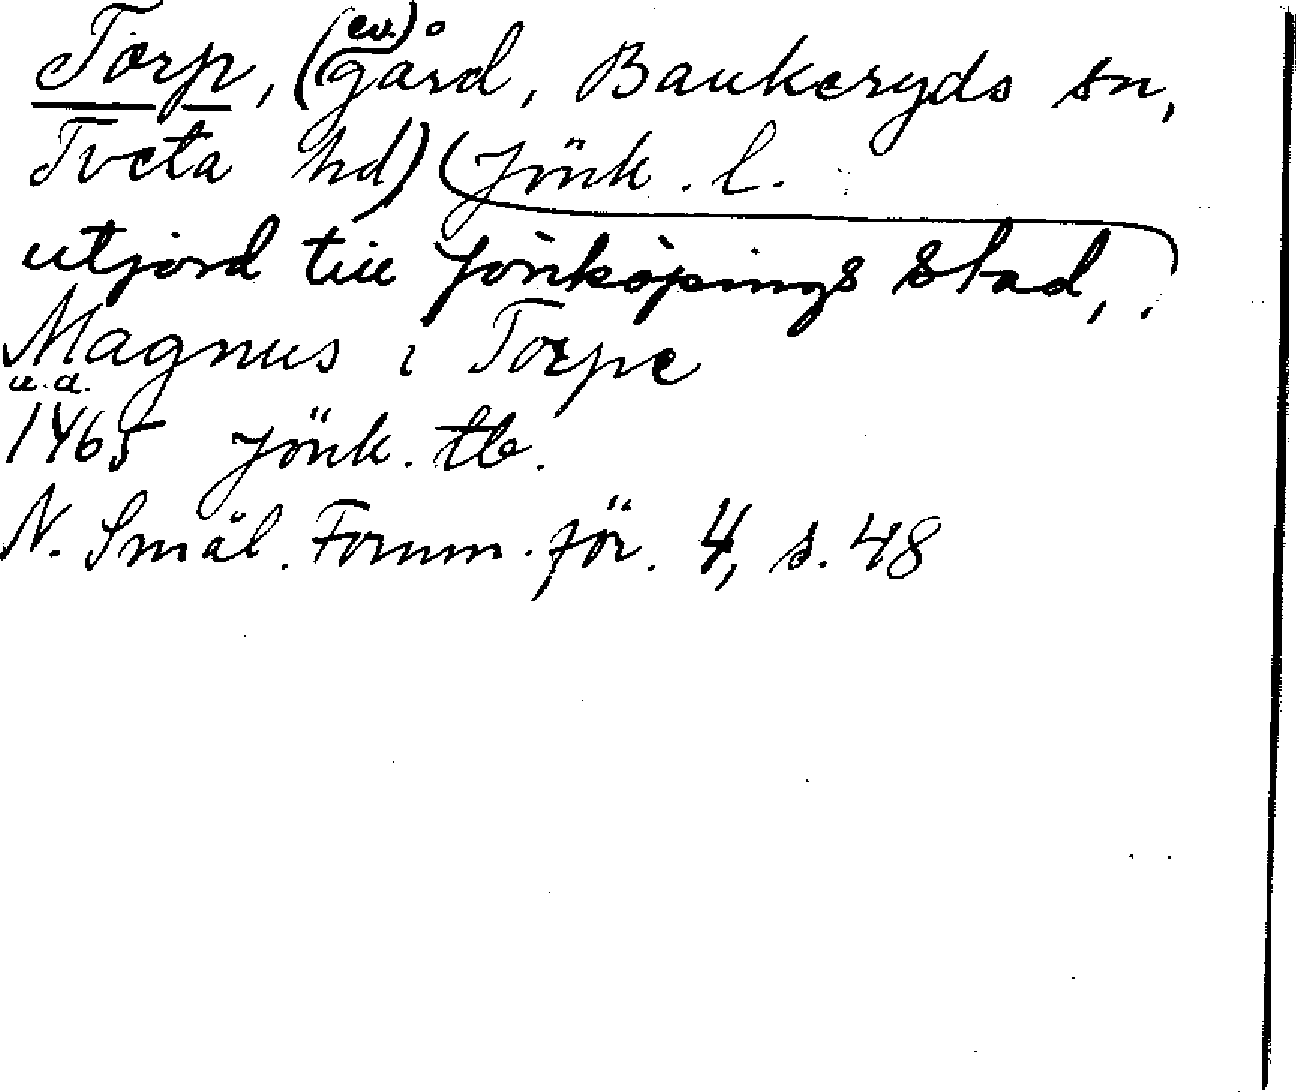 Torp, (ev.) (gård, Bankeryds sn,
Tveta hd) (Jönk. l.
utjord till Jönköpings stad,
Magnus i Torpe
u.a.
1465 Jönk. tb.
N. Smål. Fornm. för. 4, s. 48